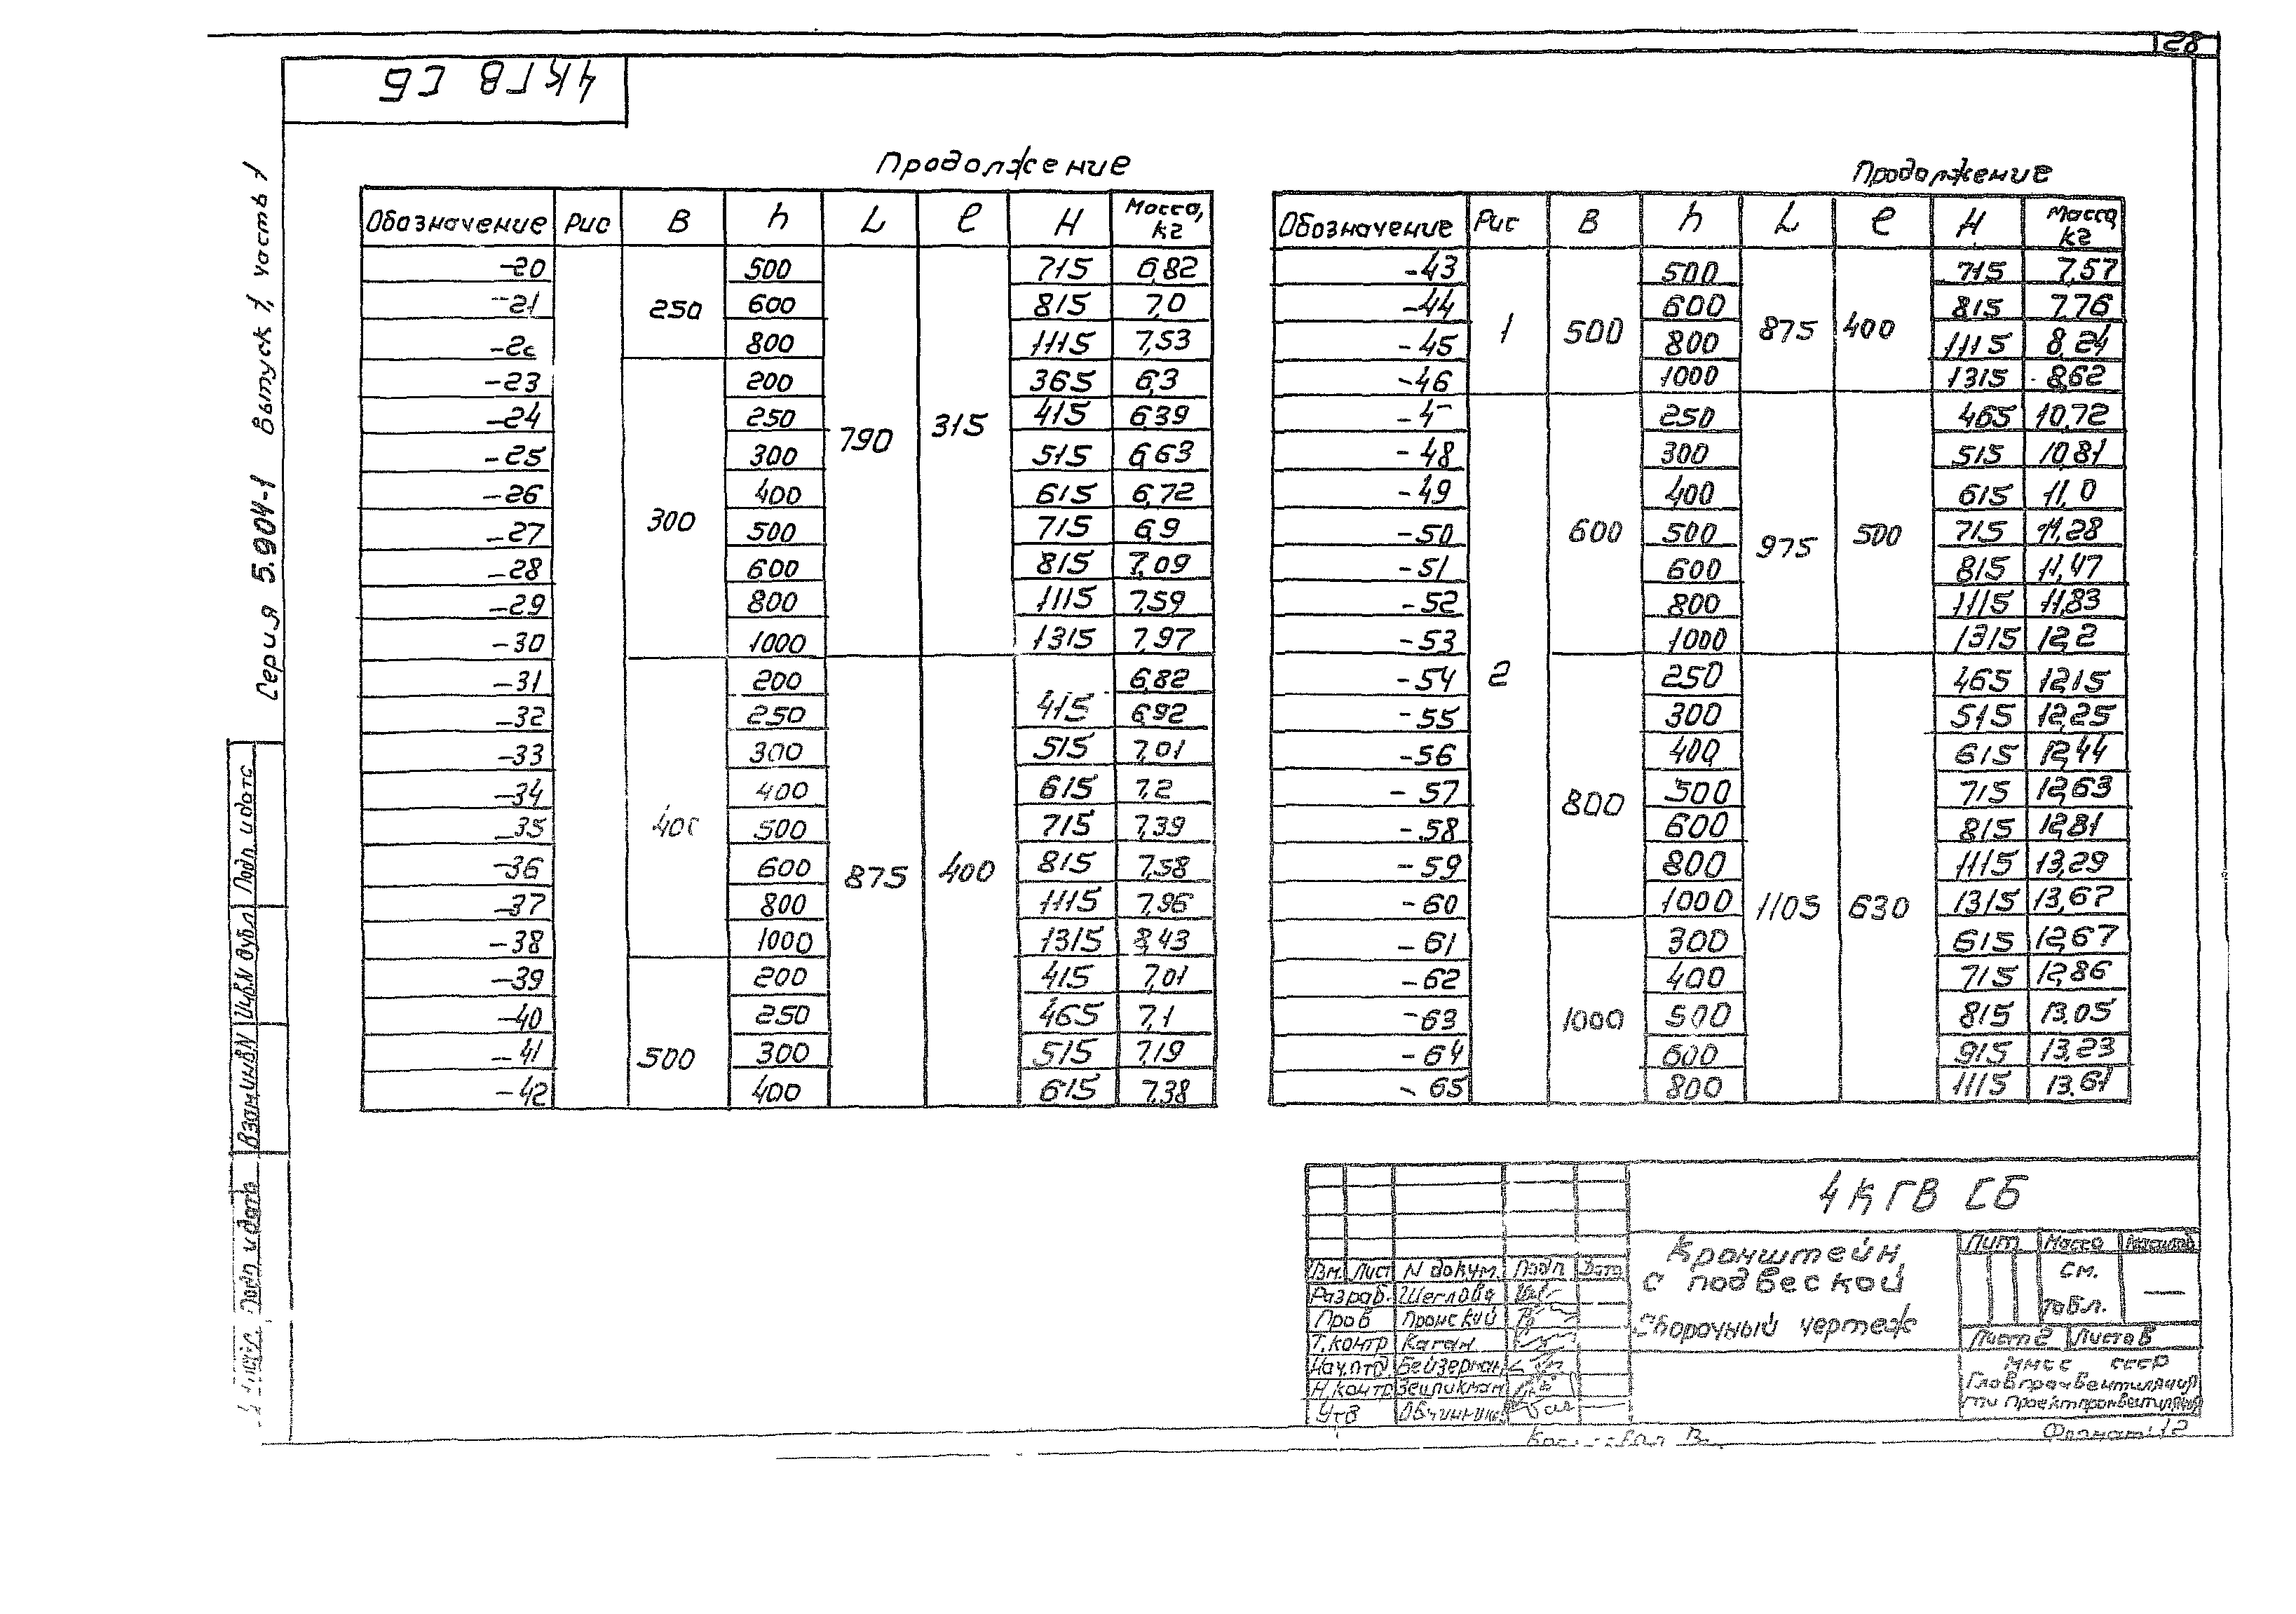 28
4КГВ СБ
Серия 5.904-1 Выпуск 1, часть 1
Продолжение
Обозначение Рис В h L ℓ Н Масса, кг
-20 250 500 790 315 715 6,82
-21 600 815 7,0
-2 800 1115 7,53
-23 300 200 365 6,3
-24 250 415 6,39
-25 300 515 6,63
-26 400 615 6,72
-27 500 715 6,9
-28 600 815 7,09
-29 800 1115 7,59
-30 1000 1315 7,97
-31 400 200 875 400 415 6,82
-32 250 6,92
-33 300 515 7,01
-34 400 615 7,2
-35 500 715 7,39
-36 600 815 7,58
-37 800 1115 7,96
-38 1000 1315 8,43
-39 500 200 415 7,01
-40 250 465 7,1
-41 300 515 7,19
-42 400 615 7,38
Продолжение
Обозначение Рис В h L ℓ Н Масса кг
-43 1 500 500 875 400 715 7,57
-44 600 815 7,76
-45 800 1115 8,24
-46 1000 1315 8,62
-4 2 600 250 975 500 465 10,72
-48 300 515 10,81
-49 400 615 11,0
-50 500 715 11,28
-51 600 815 11,47
-52 800 1115 11,83
-53 1000 1315 12,2
-54 800 250 1105 630 465 12,15
-55 300 515 12,25
-56 400 615 12,44
-57 500 715 12,63
-58 600 815 12,81
-59 800 1115 13,29
-60 1000 1315 13,67
-61 1000 300 615 12,67
-62 400 715 12,86
-63 500 815 13.05
-64 600 915 13.23
-65 800 1115 13.61
Подп и дата
Инв.N дубл
Взам инв.N
Подп и дата
4КГВ СБ
Кронштейн
с подвеской
Сборочный чертеж
Лит Масса Масштаб
см.
табл. —
Лист 2 Листов
ММСС СССР
Главпромвентиляция
ГПИ Проектпромвентиляция
Лист N докум. Подп Дата
Разраб. Щеглова
Пров Пронский
Т.контр Каган
Нач.отд. Бейзерман
Н.контр
Утв
Формат 12